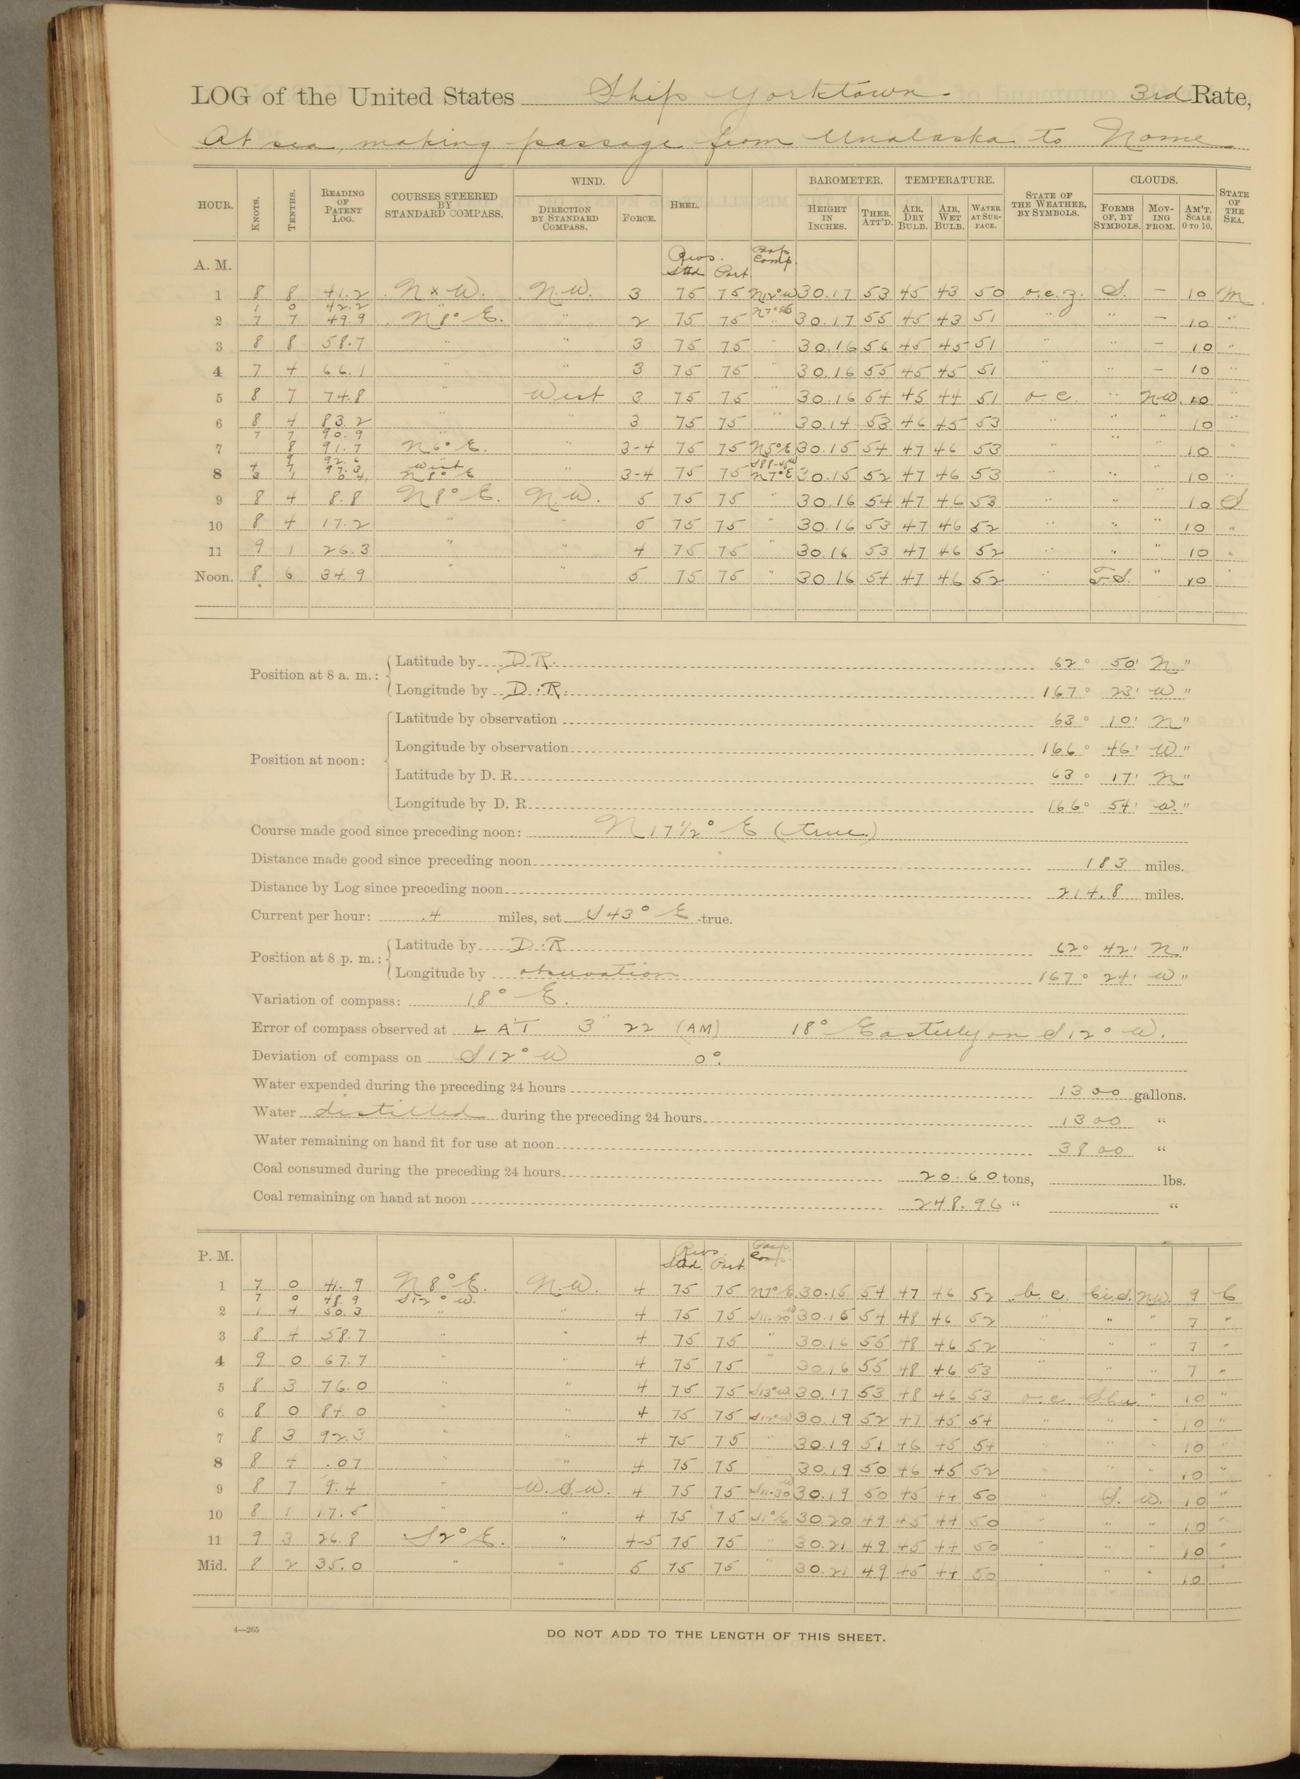 LOG of the United States Ship Yorktown. 3rd Rate,
At sea, making passage from Unalaska to Nome
HOUR. KNOTS. TENTHS. READING OF PATENT LOG. COURSES STEERED BY STANDARD COMPASS. WIND. DIRECTION BY STANDARD COMPASS. FORCE. HEEL. BAROMETER. HEIGHT IN INCHES. THER. ATT'D. TEMPERATURE. AIR, DRY BULB. AIR, WET BULB. WATER AT SURFACE. STATE OF THE WEATHER, BY SYMBOLS. CLOUDS. FORMS OF, BY SYMBOLS. MOVING FROM. AM'T. SCALE 0 TO 10. STATE OF THE SEA.
A. M. Revs. Stbd Port Comp.
1 8 8 41.2 N x W. N.W. 3 75 75 N12°W 30.17 53 45 43 50 o.c.z. S. — 10 M.
1 0 42.2
2 7 7 49.9 N8°E. " 2 75 75 N7°E 30.17 55 45 43 51 " " — 10 "
3 8 8 58.7 " " 3 75 75 " 30.16 56 45 45 51 " " — 10 "
4 7 4 66.1 " " 3 75 75 " 30.16 55 45 45 51 " " — 10 "
5 8 7 74.8 " West 3 75 75 " 30.16 54 45 44 51 o.c. " N.W. 10 "
6 8 4 83.2 " " 3 75 75 " 30.14 53 46 45 53 " " " 10 "
7 7 90.9
7 8 91.7 N6°E. " 3-4 75 75 N5°E 30.15 54 47 46 53 " " " 10 "
9 92.6
4 7 97.3 West
8 3 1 0.4 N8°E " 3-4 75 75 N7°E 30.15 52 47 46 53 " " " 10 "
9 8 4 8.8 N8°E. N.W. 5 75 75 " 30.16 54 47 46 53 " " " 10 S
10 8 4 17.2 " " 5 75 75 " 30.16 53 47 46 52 " " " 10 "
11 9 1 26.3 " " 4 75 75 " 30.16 53 47 46 52 " " " 10 "
Noon. 8 6 34.9 " " 5 75 75 " 30.16 54 47 46 52 " S. " 10 "
Position at 8 a. m.: Latitude by D.R. 62° 50' N"
Longitude by D.R. 167° 23' W"
Position at noon: Latitude by observation 63° 10' N"
Longitude by observation 166° 46' W"
Latitude by D. R. 63° 17' N"
Longitude by D. R. 166° 54' W."
Course made good since preceding noon: N 17½° E (true.)
Distance made good since preceding noon 183 miles.
Distance by Log since preceding noon 214.8 miles.
Current per hour: .4 miles, set S43°E true.
Position at 8 p. m.: Latitude by D.R 62° 42' N"
Longitude by observation 167° 24' W"
Variation of compass: 18° E.
Error of compass observed at LAT 3 22 (AM) 18° Easterly on S12°W.
Deviation of compass on S12°W 0°.
Water expended during the preceding 24 hours 1300 gallons.
Water distilled during the preceding 24 hours 1300 "
Water remaining on hand fit for use at noon 3800 "
Coal consumed during the preceding 24 hours 20.60 tons, lbs.
Coal remaining on hand at noon 248.96 " "
P. M. Revs. Stbd. Port. Comp.
1 7 0 41.9 N8°E. N.W. 4 75 75 N7°E 30.15 54 47 46 52 b.c. Ci.S. NW 9 C
7 0 48.9 S12°W.
2 1 4 50.3 " " 4 75 75 30.15 54 48 46 52 " " " 7 "
3 8 4 58.7 " " 4 75 75 " 30.16 55 48 46 52 " " " 7 "
4 9 0 67.7 " " 4 75 75 " 30.16 55 48 46 53 " " " 7 "
5 8 3 76.0 " " 4 75 75 S13°W 30.17 53 48 46 53 o.c. " 10 "
6 8 0 84.0 " " 4 75 75 S12°W 30.19 52 47 45 54 " " " 10 "
7 8 3 92.3 " " 4 75 75 " 30.19 51 46 45 54 " " " 10 "
8 8 4 .07 " " 4 75 75 " 30.19 50 46 45 52 " " " 10 "
9 8 7 9.4 " W.S.W. 4 75 75 30.19 50 45 44 50 " S. W. 10 "
10 8 1 17.5 " " 4 75 75 S1°E 30.20 49 45 44 50 " " " 10 "
11 9 3 26.8 S2°E. " 4-5 75 75 " 30.21 49 45 44 50 " " " 10 "
Mid. 8 2 35.0 " " 5 75 75 " 30.21 49 45 44 50 " " " 10 "
4—265
DO NOT ADD TO THE LENGTH OF THIS SHEET.